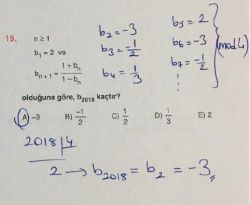 19. n ≥ 1
b₁ = 2 ve
bₙ₊₁ = (1 + bₙ) / (1 - bₙ)
b₂ = -3
b₃ = -1/2
b₄ = 1/3
b₅ = 2
b₆ = -3
b₇ = -1/2
⋮
(mod 4)
olduğuna göre, b₂₀₁₈ kaçtır?
A) -3 B) -1/2 C) 1/2 D) 1/3 E) 2
2018 | 4
2 → b₂₀₁₈ = b₂ = -3